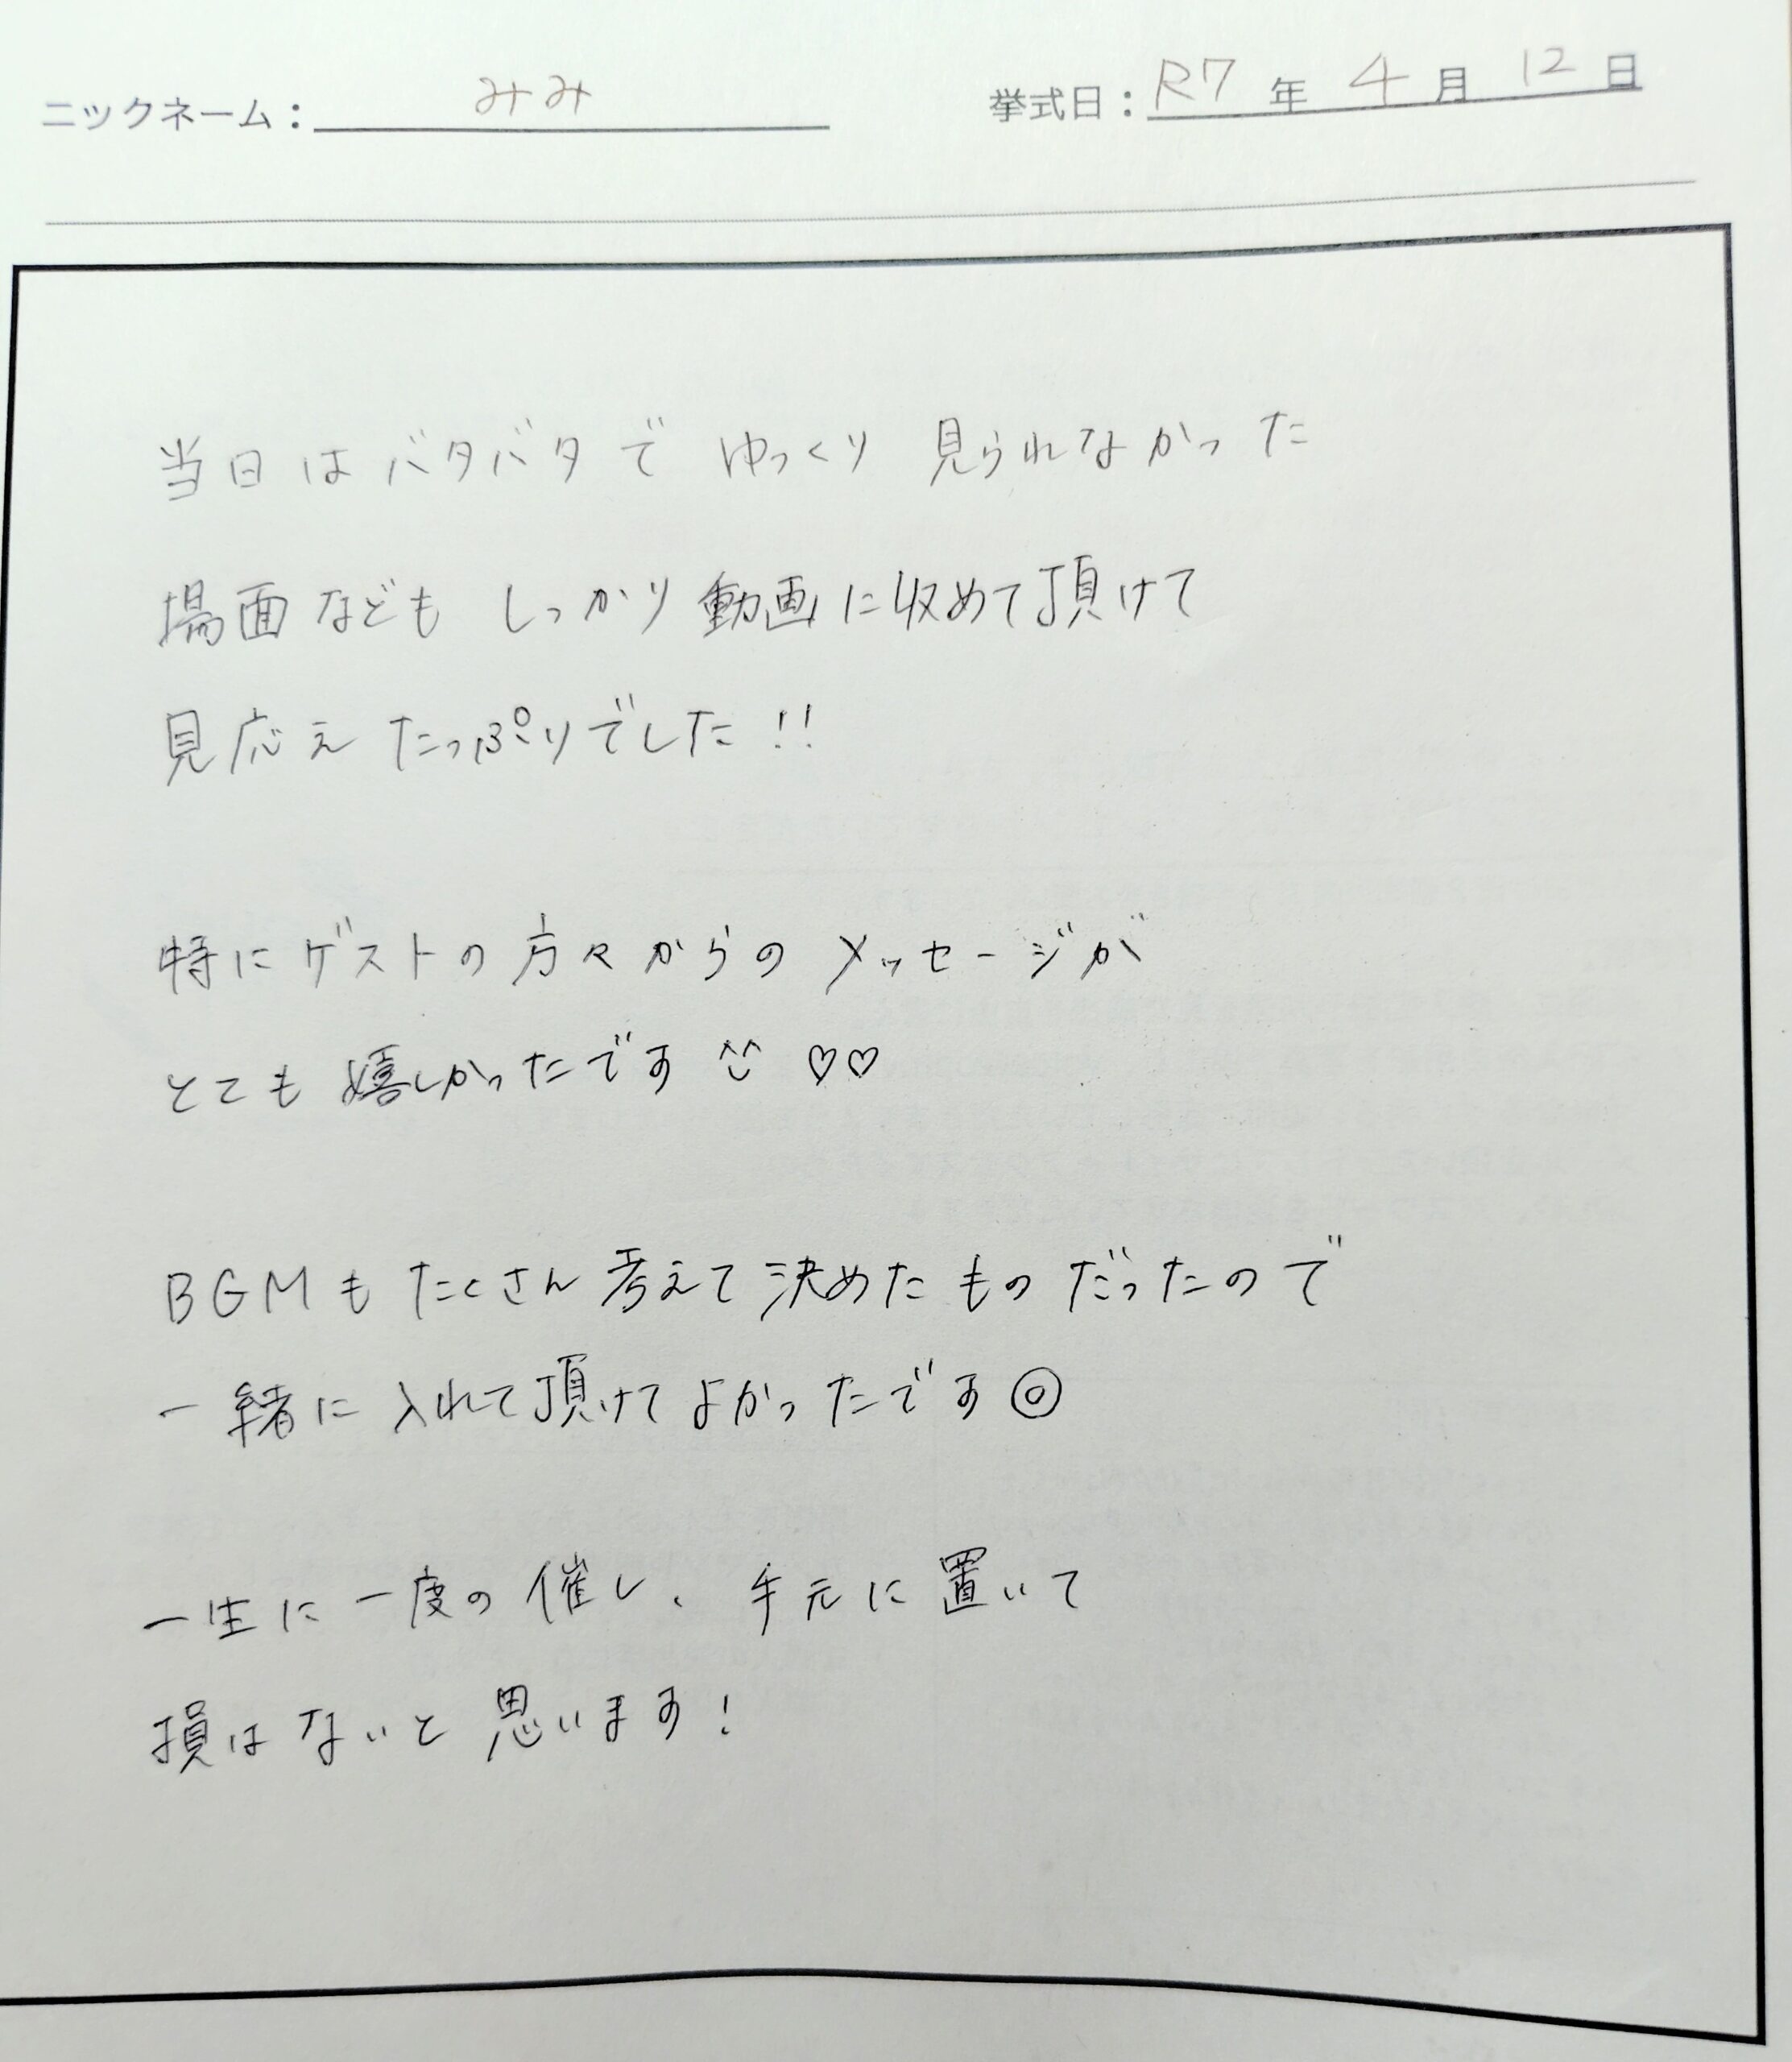 ニックネーム：みみ 挙式日：R7年4月12日
当日はバタバタでゆっくり見られなかった
場面などもしっかり動画に収めて頂けて
見応えたっぷりでした!!
特にゲストの方々からのメッセージが
とても嬉しかったです ♡♡
BGMもたくさん考えて決めたものだったので
一緒に入れて頂けてよかったです◎
一生に一度の催し、手元に置いて
損はないと思います!